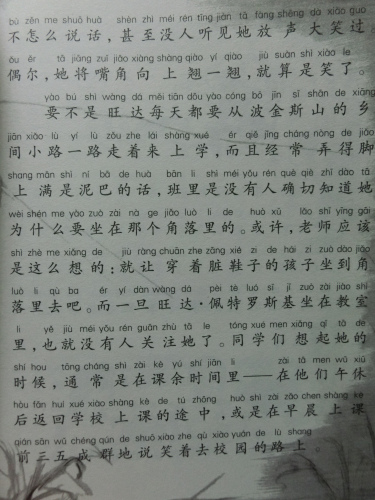 bù zěn me shuō huà shèn zhì méi rén tīng jiàn tā fàng shēng dà xiào guò
不怎么说话，甚至没人听见她放声大笑过
ǒu ěr tā jiāng zuǐ jiǎo xiàng shàng qiào yi qiào jiù suàn shì xiào le
偶尔，她将嘴角向上翘一翘，就算是笑了。
yào bú shì wàng dá měi tiān dōu yào cóng bō jīn sī shān de xiāng
要不是旺达每天都要从波金斯山的乡
jiān xiǎo lù yí lù zǒu zhe lái shàng xué ér qiě jīng cháng nòng de jiǎo
间小路一路走着来上学，而且经常弄得脚
shang mǎn shì ní bā de huà bān li shì méi yǒu rén què qiè zhī dào tā
上满是泥巴的话，班里是没有人确切知道她
wèi shén me yào zuò zài nà ge jiǎo luò li de huò xǔ lǎo shī yīng gāi
为什么要坐在那个角落里的。或许，老师应该
shì zhè me xiǎng de jiù ràng chuān zhe zāng xié zi de hái zi zuò dào jiǎo
是这么想的：就让穿着脏鞋子的孩子坐到角
luò li qù ba ér yí dàn wàng dá pèi tè luó sī jī zuò zài jiào shì
落里去吧。而一旦旺达·佩特罗斯基坐在教室
li yě jiù méi yǒu rén guān zhù tā le tóng xué men xiǎng qǐ tā de
里，也就没有人关注她了。同学们想起她的
shí hou tōng cháng shì zài kè yú shí jiān li zài tā men wǔ xiū
时候，通常是在课余时间里——在他们午休
hòu fǎn huí xué xiào shàng kè de tú zhōng huò shì zài zǎo chen shàng kè
后返回学校上课的途中，或是在早晨上课
qián sān wǔ chéng qún de shuō xiào zhe qù xiào yuán de lù shang
前三五成群地说笑着去校园的路上。